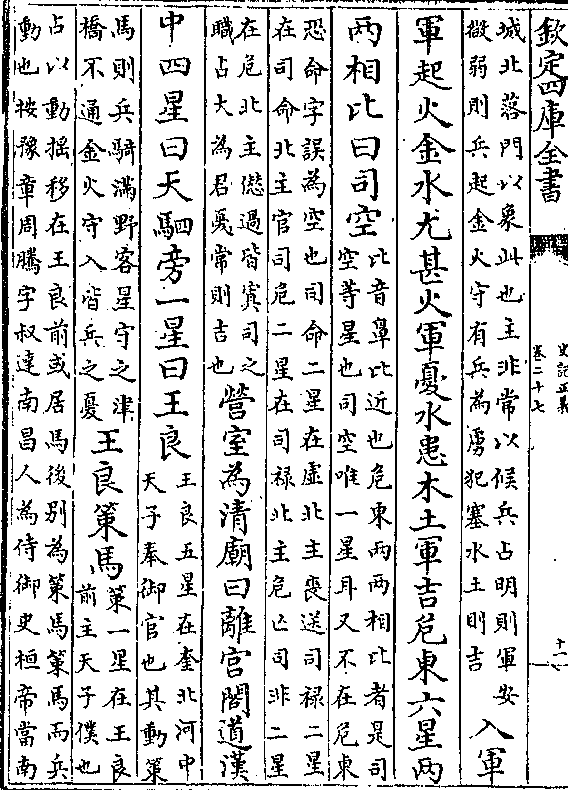 欽定四庫全書
史記正義
卷二十七
十一
城北落門以象此也主非常以候兵占明則軍安
微弱則兵起金火守有兵為虜犯塞水土則吉
入軍
軍起火金水尤甚火軍憂水患木土軍吉危東六星兩
兩相比曰司空
比音鼻比近也危東兩兩相比者是司
空等星也司空唯一星耳又不在危東
恐命字誤為空也司命二星在虛北主喪送司禄二星
在司命北主官司危二星在司禄北主危亡司非二星
在危北主愆過皆寘司之
職占大為君憂常則吉也
營室為清廟曰離宮閣道漢
中四星曰天駟旁一星曰王良
王良五星在奎北河中
天子奉御官也其動策
馬則兵騎滿野客星守之津
橋不通金火守入皆兵之憂
王良策馬
策一星在王良
前主天子僕也
占以動摇移在王良前或居馬後别為策馬策馬而兵
動也按豫章周騰字叔達南昌人為侍御史桓帝當南